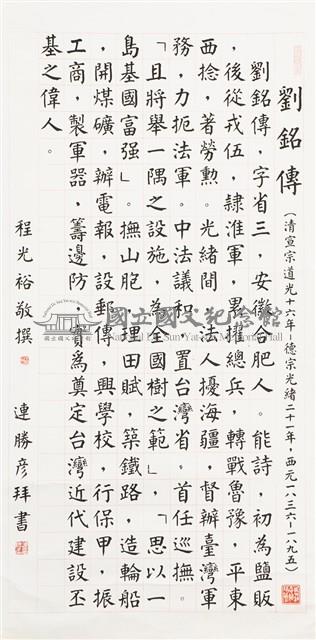 劉銘傳(清宣宗道光十六年－德宗光緒二十一年，西元一八三六－一八九五)
劉銘傳，字省三，安徽合肥人。能詩，初為鹽販
，後從戎伍，隸淮軍，累擢總兵，轉戰魯豫，平東
西捻，著勞勳。光緒間，法人擾海疆，督辦臺灣軍
務，力扼法軍。中法議和，置台灣省。首任巡撫。
「且將舉一隅之設施，為全國樹之範」，「思以一
島基國富强」。撫山胞，理田賦，築鐵路，造輪船
，開煤礦，辦電報，設郵傳，興學校，行保甲，振
工商，製軍器，籌邊防，實為奠定台灣近代建設丕
基之偉人。
程光裕敬撰
連勝彥拜書
國立國父紀念館